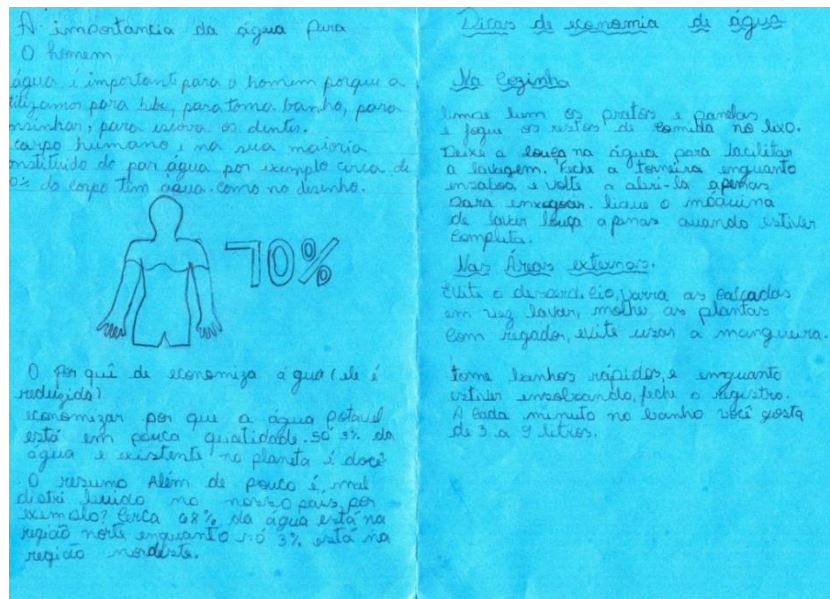 A importancia da água para
O homem
água é important para o homem porque a
tilizamos para bebe, para toma banho, para
onsinhar, para escova os dentes.
corpo humano é na sua maioria
onstituido do por água por exemplo circa de
0% do corpo tem água. Como no desenho.
70%
O por quê de economiza água (ele é
reduzida)
economizar por que a água potavel
está em pouca quatidade. Só 3% da
água e existente no planeta é docê
O resumo Além de pouco é, mal
distri buido no nosso pais, por
exemplo? Cerca 68% da água está na
região norte enquanto só 3% está na
região nordeste.
Dicas de economia de água
Na Cozinha
limpe bem os pratos e panelas
e jogue os restos de comida no lixo.
Deixe a louça na água para facilitar
a lavagem. feche a torneira enquanto
ensaboa e volte a abri-la apenas
para enxaguar. ligue o máquina
de lavar louça apenas quando estiver
Completa.
Nas Áreas externas.
Evite o desperdi cio, varra as calçadas
em vez lavar, molhe as plantas
com regador, evite usar a mangueira.
tome banhos rápidos, e emquanto
estiver ensoboando, feche o registro.
A cada minuto no banho você gosta
de 3 a 9 litros.